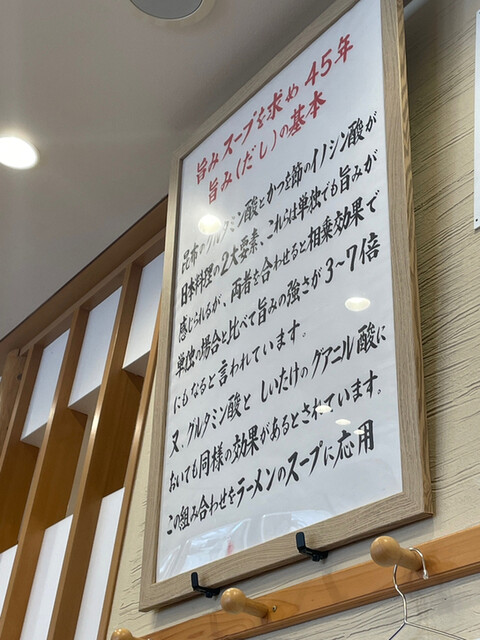 旨みスープを求め45年
旨み(だし)の基本
昆布のグルタミン酸とかつを節のイノシン酸が
日本料理の2大要素、これらは単独でも旨みが
感じられるが、両者を合わせると相乗効果で
単独の場合と比べて旨みの強さが3~7倍
にもなると言われています。
又、グルタミン酸としいたけのグアニル酸に
おいても同様の効果があるとされています。
この組み合わせをラーメンのスープに応用